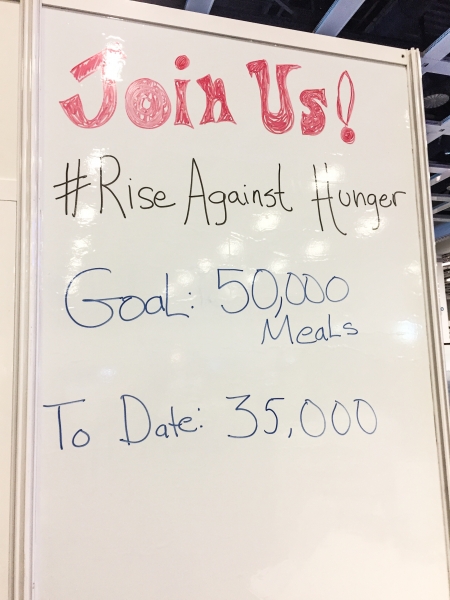 Join Us!
#Rise Against Hunger
Goal: 50,000
Meals
To Date: 35,000